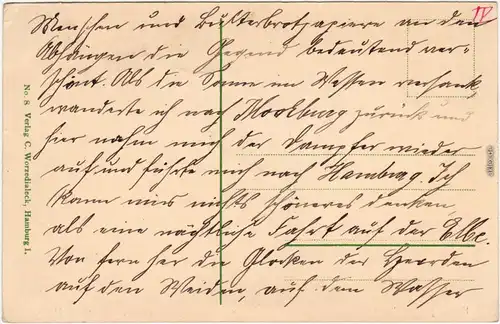 Menschen und Butterbrotpapiere an den
Abhängen die Gegend bedeutend ver-
schönt. Als die Sonne im Westen versank,
wanderte ich nach Moorburg zurück und
hier nahm mich der Dampfer wieder
auf und führte mich nach Hamburg. Ich
kann mir nichts schöneres denken,
als eine nächtliche Fahrt auf der Elbe.
Von fern her die Glocken der Heerden
auf den Weiden, auf dem Wasser
IV
No. 8 Verlag C. Worzedialeck, Hamburg I.